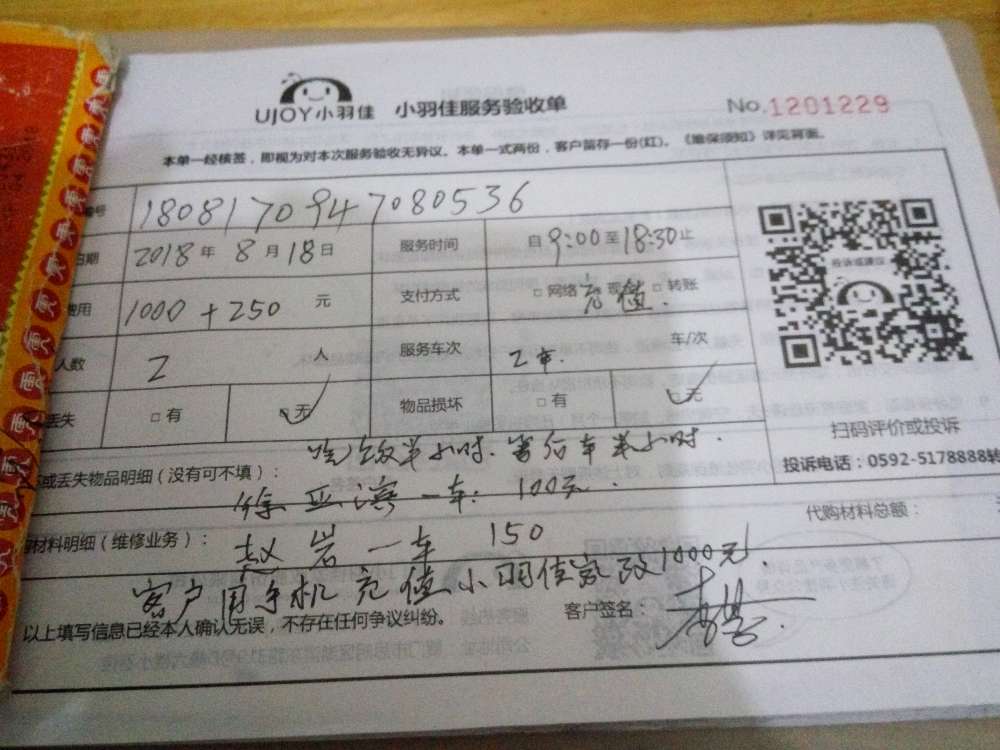 UJOY小羽佳 小羽佳服务验收单 No.1201229
本单一经核签，即视为对本次服务验收无异议。本单一式两份，客户留存一份(红)。《维保须知》详见背面。
编号 1808170947080536
日期 2018年8月18日 服务时间 自9:00至18:30止
费用 1000+250 元 支付方式 □网络 □现 充值. □转账
人数 2 人 服务车次 2车. 车/次
丢失 □有 □无 物品损坏 □有 □无
投诉或建议
扫码评价或投诉
投诉电话：0592-5178888转
吃饭半小时. 等后车半小时.
或丢失物品明细（没有可不填）：
徐亚滨一车：100元.
代购材料总额：
材料明细（维修业务）：
赵岩一车 150
客户用手机充值小羽佳家政1000元.
客户签名：
以上填写信息已经本人确认无误，不存在任何争议纠纷。